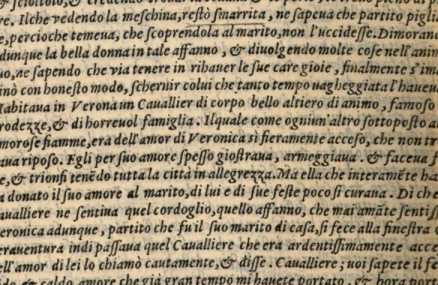 & scrittolo, &
re. Ilche vedendo la meschina, restò smarrita, ne sapeua che partito pigli
e, percioche temeua, che scoprendola al marito, non l'uccidesse. Dimoran
dunque la bella donna in tale affanno, & diuolgendo molte cose nell'anim
uo, ne sapendo che via tenere in rihauer le sue care gioie, finalmente s'im
inò con honesto modo, schernir colui che tanto tempo uagheggiata l'haueu
Habitaua in Verona un Cauallier di corpo bello altiero di animo, famoso
rodezze, & di horreuol famiglia. Ilquale come ogniun'altro sottoposto a
morose fiamme, era dell'amor di Veronica sì fieramente acceso, che non tr
aua riposo. Egli per suo amore spesso giostraua, armeggiaua. & faceua f
e, & trionfi tenẽdo tutta la città in allegrezza. Ma ella che interamẽte ha
a donato il suo amore al marito, di lui e di sue feste poco si curaua. Di ch
aualliere ne sentiua quel cordoglio, quello affanno, che mai amãte sentì s
eronica adunque, partito che fu il suo marito di casa, si fece alla finestra
erauentura indi passaua quel Caualliere che era ardentissimamente acces
ell'amor di lei lo chiamò cautamente, & disse. Caualliere; uoi sapete il fe
do, & caldo amore che già gran tempo mi hauete portato, & hora port